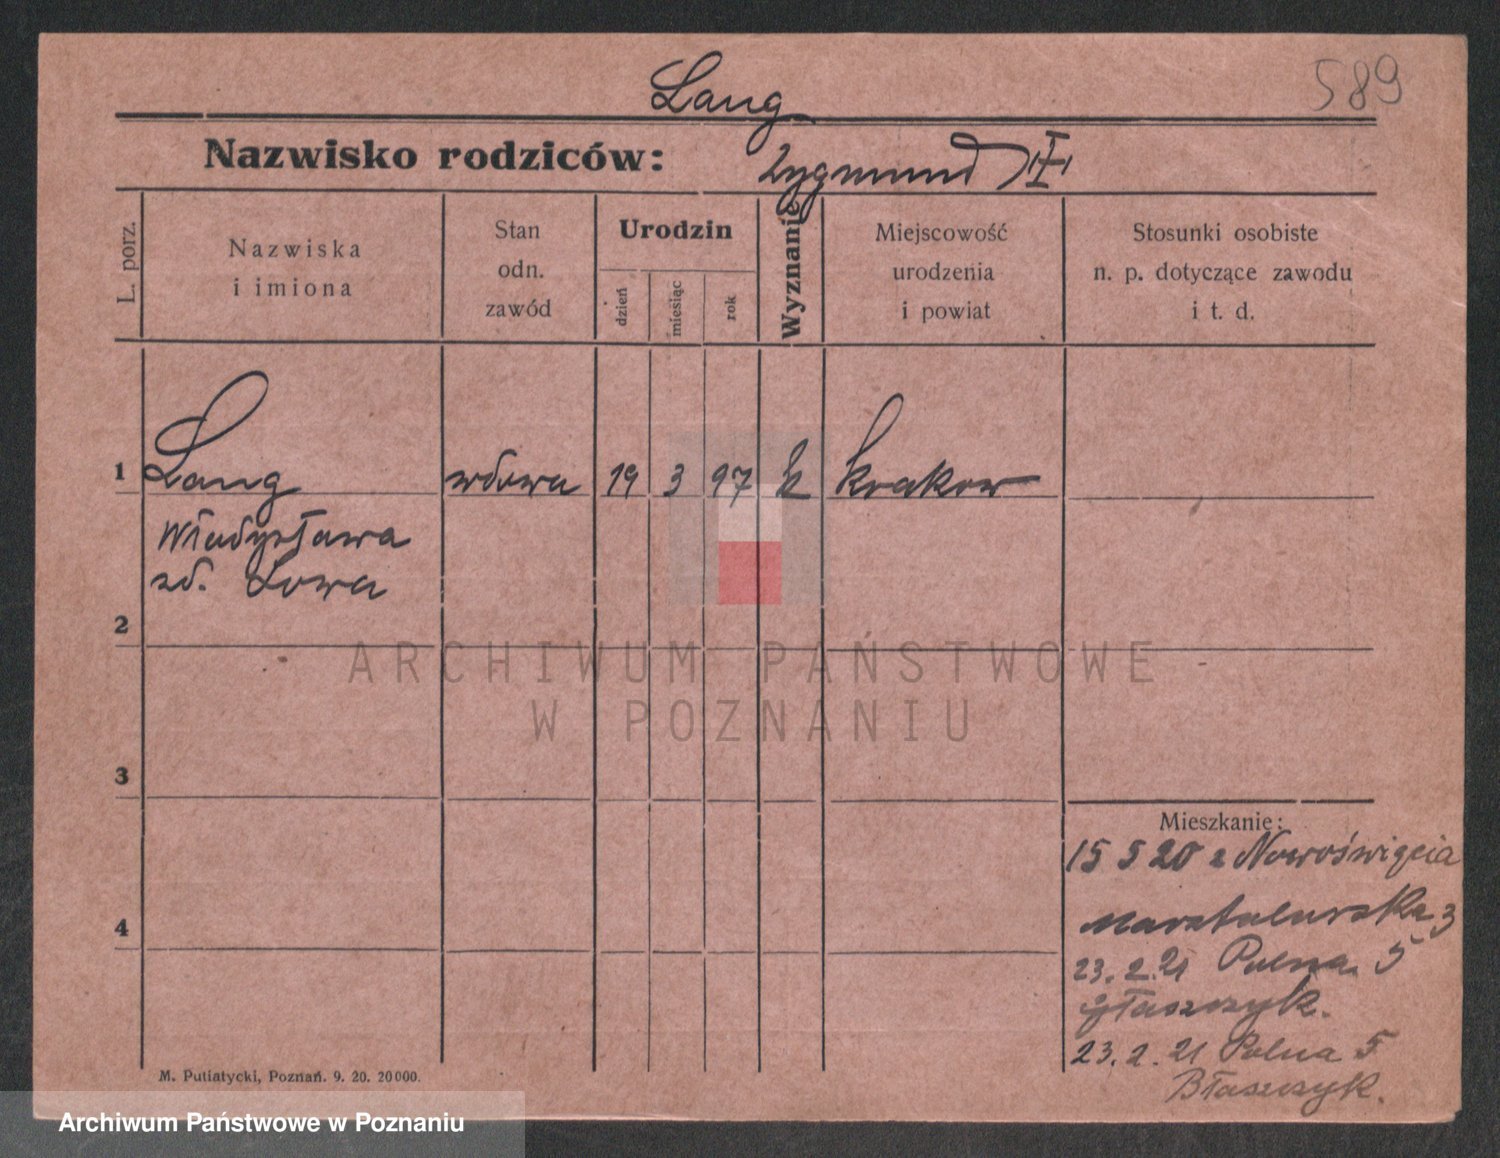 589
Lang
Nazwisko rodziców: Zygmund
L. porz.
Nazwiska
i imiona
Stan
odn.
zawód
Urodzin
dzień
miesiąc
rok
Wyznanie
Miejscowość
urodzenia
i powiat
Stosunki osobiste
n. p. dotyczące zawodu
i t. d.
1 Lang wdowa 19 3 97 k Krakow
Władysława
zd. Lowa
2
3
4
ARCHIWUM PAŃSTWOWE
W POZNANIU
Mieszkanie:
15 5 20 z Nowoświęcia
Marstalarska 3
23. 2. 21 Polna 5
23. 2. 21 Polna 5
Błaszczyk.
M. Putiatycki, Poznań. 9. 20. 20000.
Archiwum Państwowe w Poznaniu